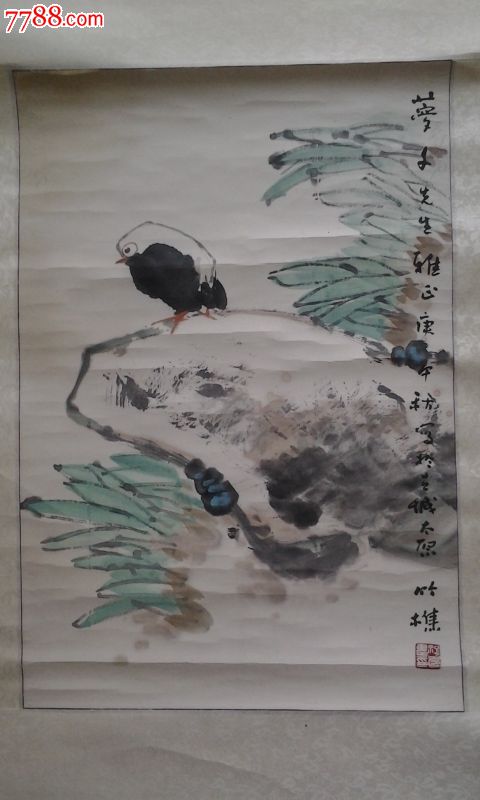 7788.com
梦千先生雅正庚午秋写于古城太原竹樵